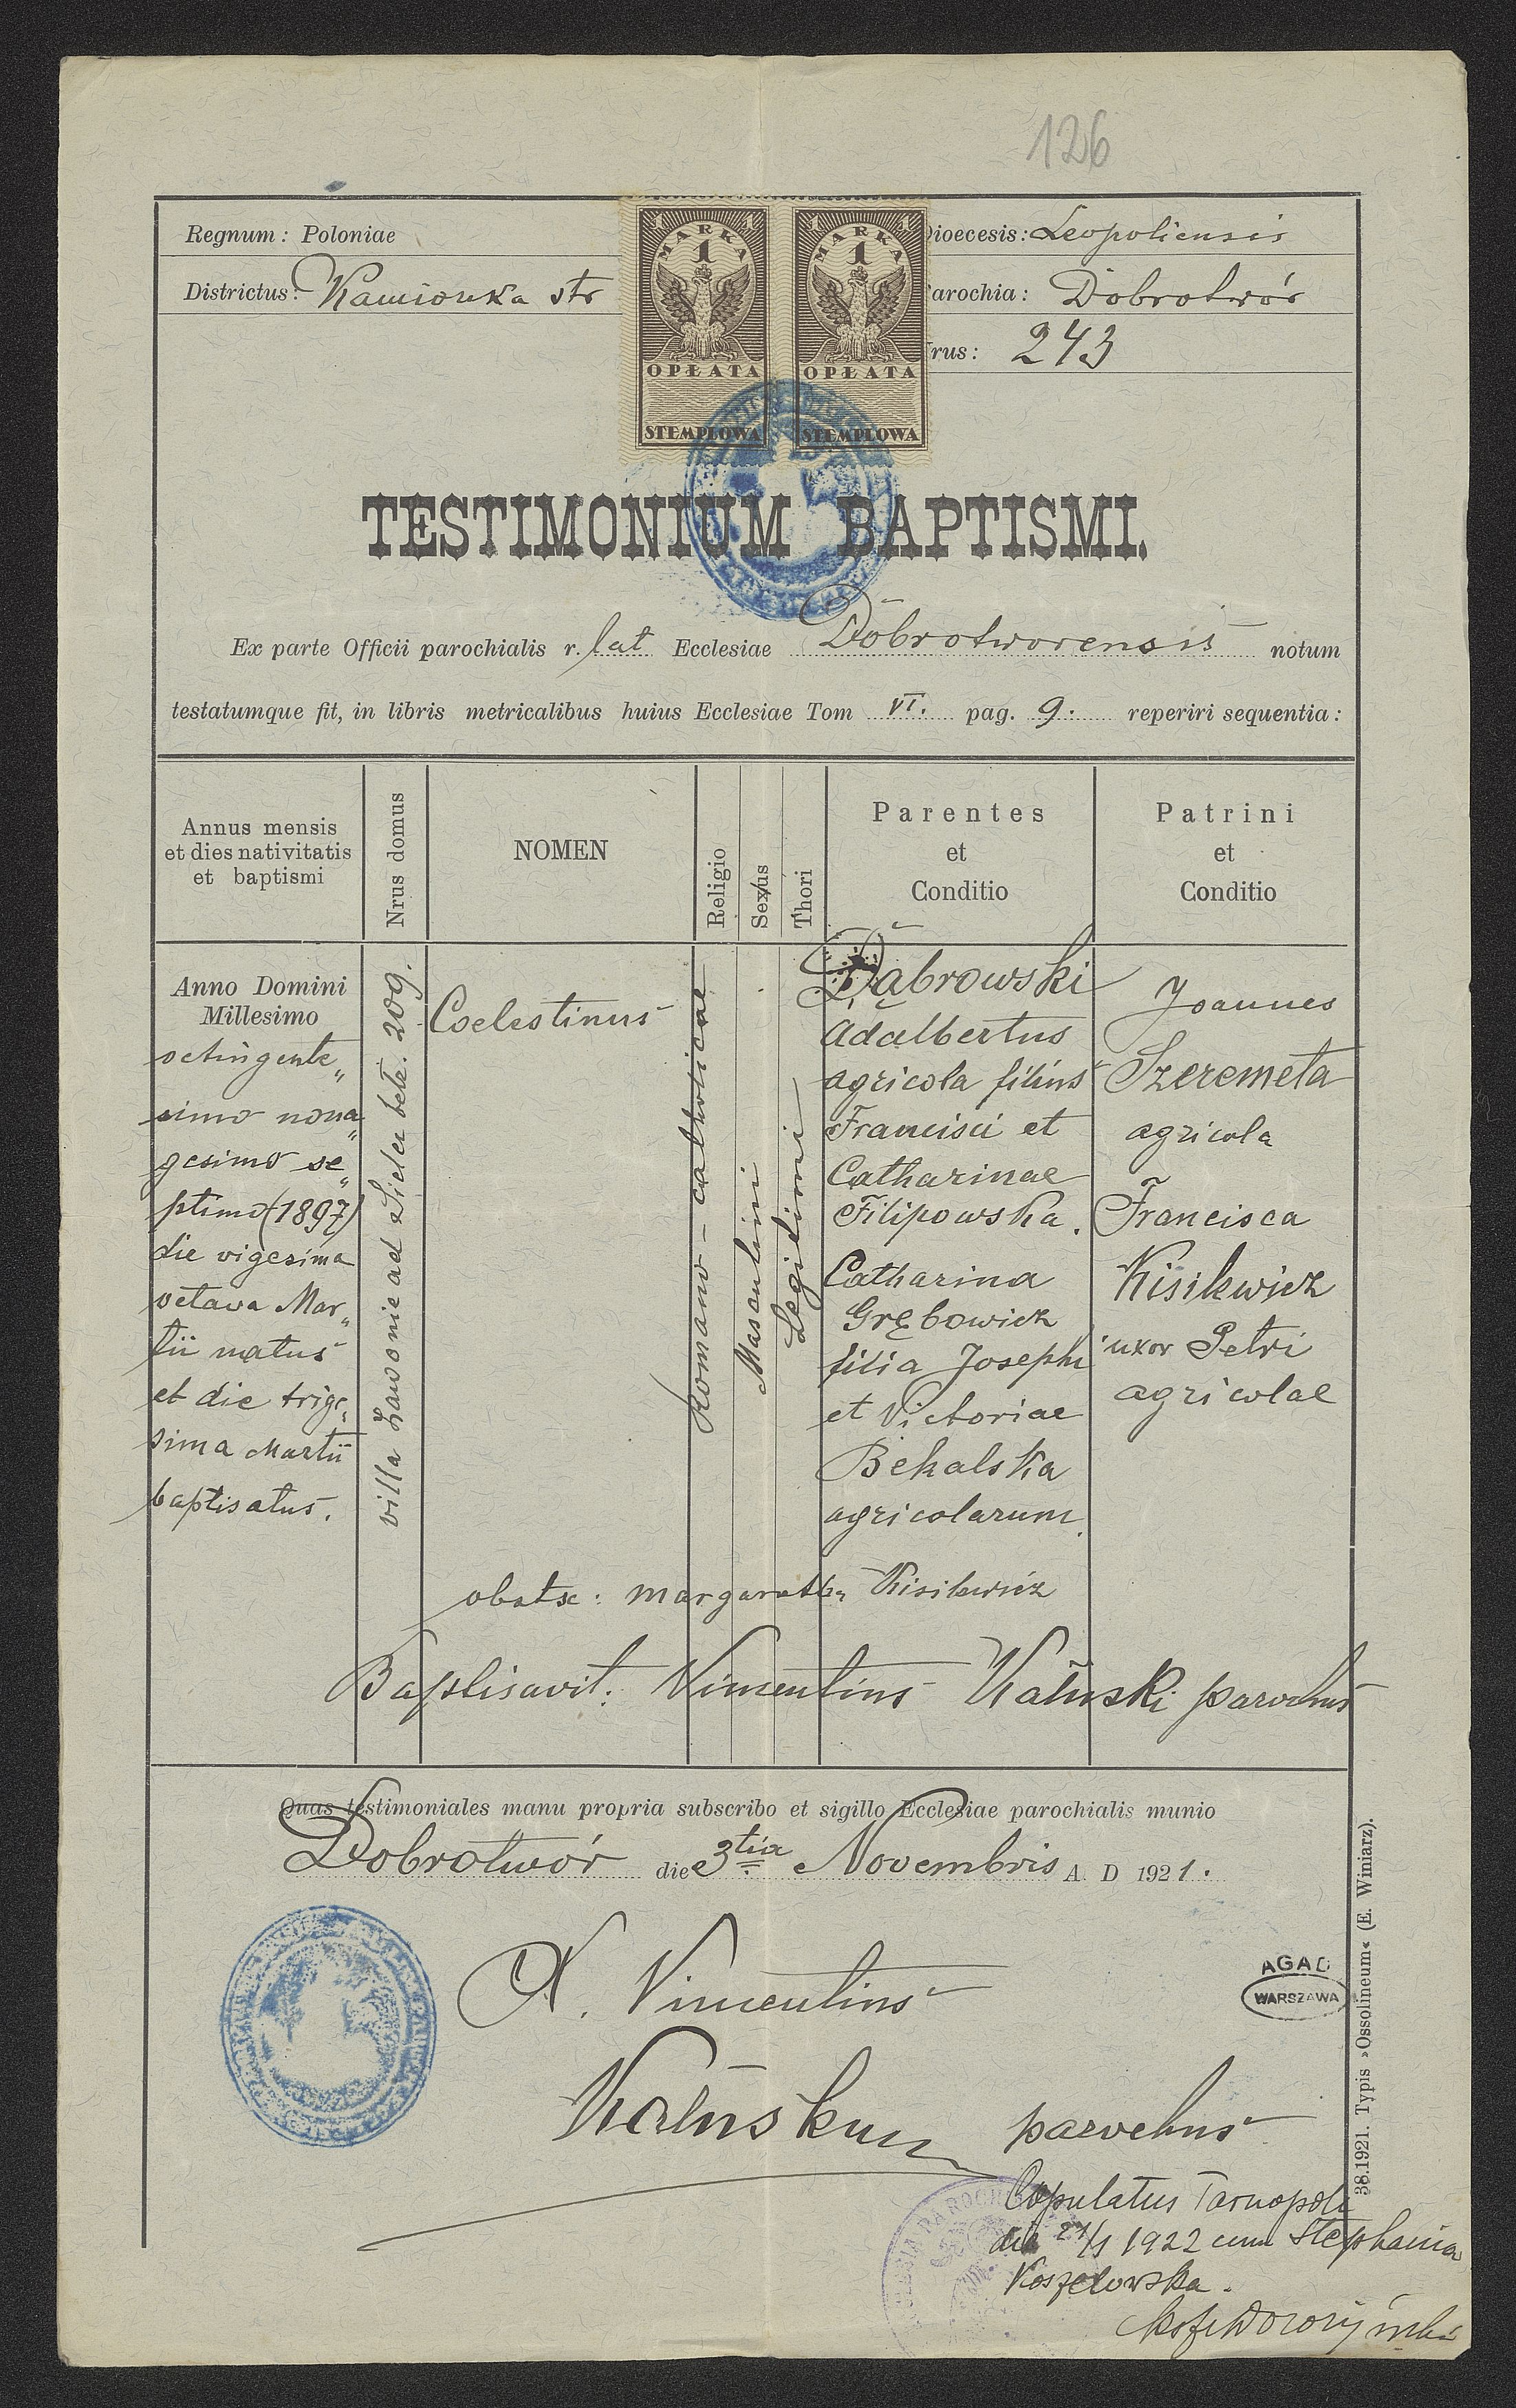 126
Regnum: Poloniae
Dioecesis: Leopoliensis
Districtus: Kamionka str
arochia: Dobrotwór
rus: 243
1 1
MARKA
1
OPŁATA
STEMPLOWA
1 1
MARKA
1
OPŁATA
STEMPLOWA
TESTIMONIUM BAPTISMI.
Ex parte Officii parochialis r. lat Ecclesiae Dobrotworensis notum
testatumque fit, in libris metricalibus huius Ecclesiae Tom VI. pag. 9. reperiri sequentia:
Annus mensis
et dies nativitatis
et baptismi
Nrus domus
NOMEN
Religio
Sexus
Thori
Parentes
et
Conditio
Patrini
et
Conditio
Anno Domini
Millesimo
octingente„
simo nona„
gesimo se„
ptimo (1897)
die vigesima
octava Mar„
tii natus
et die trige„
sima Martii
baptisatus.
villa ad 209.
Coelestinus
Romano-catholicae
Masculini
Legitimi
Dąbrowski
Adalbertus
agricola filius
Francisci et
Catharinae
Filipowska.
Catharina
Grębowicz
filia Josephi
et Victoriae
Bekalska
agricolarum.
Joannes
Szeremeta
agricola
Francisca
Kisilewicz
uxor Petri
agricolae
obstx: Margaretha Kisilewicz
Baptisavit: Vincentius Kałuski parochus
Quas testimoniales manu propria subscribo et sigillo Ecclesiae parochialis munio
Dobrotwór die 3tia Novembris A. D 1921.
X. Vincentius
Kałuski
parochus
AGAD
WARSZAWA
38.1921. Typis »Ossolineum« (E. Winiarz).
Copulatus Tarnopoli
die 1922 cum Stephania
Koszelowska.